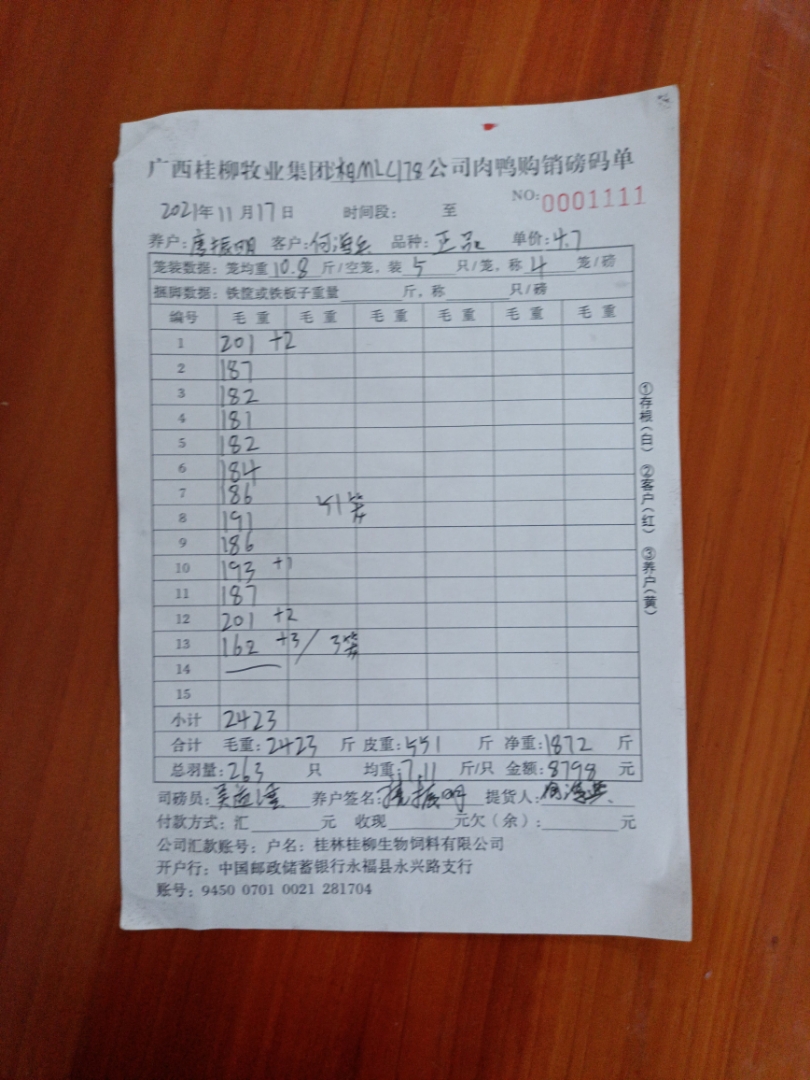 广西桂柳牧业集团 MLC178公司肉鸭购销磅码单
NO:0001111
2021年11月17日 时间段: 至
养户:唐振明 客户:何海 品种:正品 单价:4.7
笼装数据:笼均重10.8斤/空笼,装5只/笼,称4笼/磅
捆脚数据:铁筐或铁板子重量 斤,称 只/磅
编号 毛重 毛重 毛重 毛重 毛重 毛重
1 201 +2
2 187
3 182
4 181
5 182
6 184
7 186
51笼
8 191
9 186
10 193 +1
11 187
12 201 +2
13 162 +3/ 3笼
14
15
小计 2423
合计 毛重:2423斤 皮重:551斤 净重:1872斤
总羽量:263只 均重:7.11斤/只 金额:8798元
司磅员: 养户签名: 振明 提货人:何海
付款方式:汇 元 收现 元欠(余): 元
公司汇款账号:户名:桂林桂柳生物饲料有限公司
开户行:中国邮政储蓄银行永福县永兴路支行
账号:9450 0701 0021 281704
①存根(白) ②客户(红) ③养户(黄)